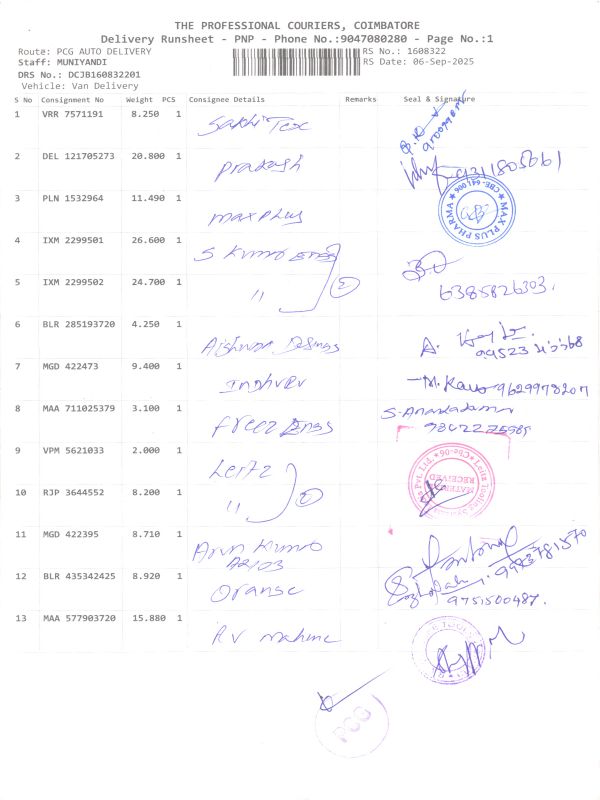 THE PROFESSIONAL COURIERS, COIMBATORE
Delivery Runsheet - PNP - Phone No.:9047080280 - Page No.:1
Route: PCG AUTO DELIVERY
RS No.: 1608322
Staff: MUNIYANDI
RS Date: 06-Sep-2025
DRS No.: DCJB160832201
Vehicle: Van Delivery
S No Consignment No Weight PCS Consignee Details Remarks Seal & Signature
1 VRR 7571191 8.250 1 Sakhi Tex
2 DEL 121705273 20.800 1 Pradash
3 PLN 1532964 11.490 1 maxplus
MAX PLUS PHARMA ★ CBE-641 006 ★
4 IXM 2299501 26.600 1 S Kumo Engg
5 IXM 2299502 24.700 1 " 2 6385826303.
6 BLR 285193720 4.250 1 A.
7 MGD 422473 9.400 1 M. 9629978207
8 MAA 711025379 3.100 1 Freez Engg
9 VPM 5621033 2.000 1 Leitz
Leitz Tooling Pvt. Ltd. Cbe-06
MATERIAL RECEIVED
10 RJP 3644552 8.200 1 " 2
11 MGD 422395 8.710 1 Arun Kumo
12 BLR 435342425 8.920 1 Oranse
9751500487.
13 MAA 577903720 15.880 1 RV mahine
PCG